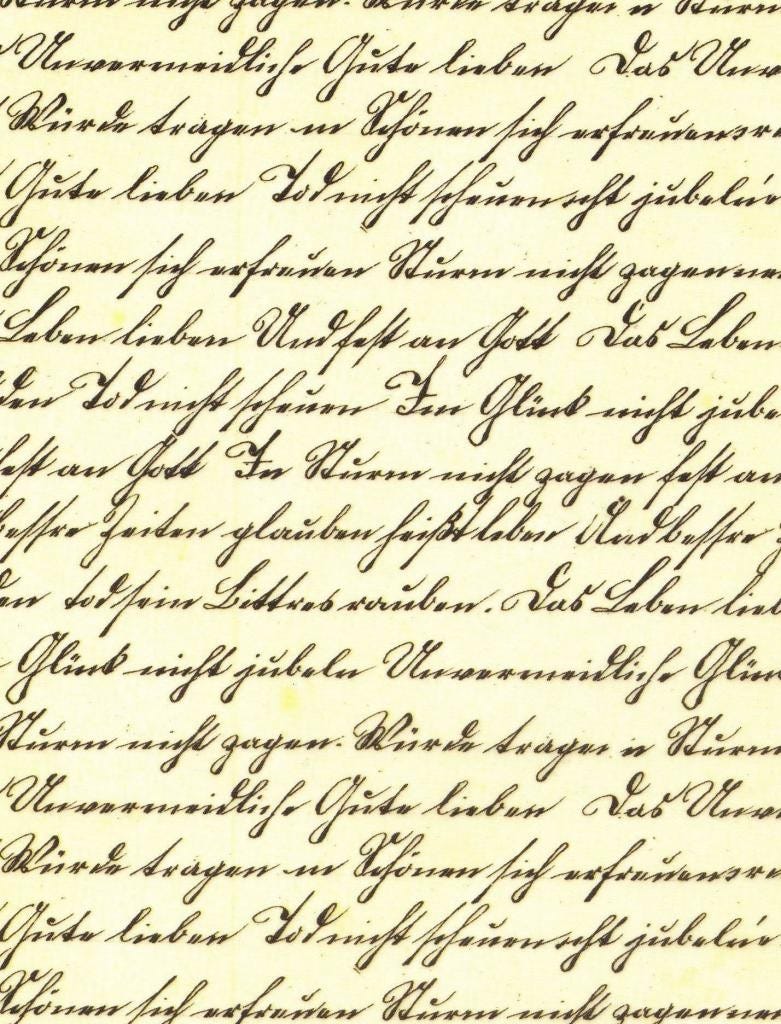 Sturm nicht zagen. Würde tragen n Sturm
Unvermeidliche Gute lieben Das Unv
Würde tragen m Schönen sich erfreuen
Gute lieben Tod nicht scheuen cht jubeln
Schönen sich erfreuen Sturm nicht zagen
Leben lieben Und fest an Gott Das Leben
den Tod nicht scheuen Im Glück nicht jube
fest an Gott In Sturm nicht zagen fest an
bessre Zeiten glauben heißt leben Und bessre
en tod sein Bittres rauben. Das Leben lieb
Glück nicht jubeln Unvermeidliche Glü
Sturm nicht zagen. Würde tragen n Sturm
Unvermeidliche Gute lieben Das Unv
Würde tragen m Schönen sich erfreuen
Gute lieben Tod nicht scheuen cht jubeln
Schönen sich erfreuen Sturm nicht zagen